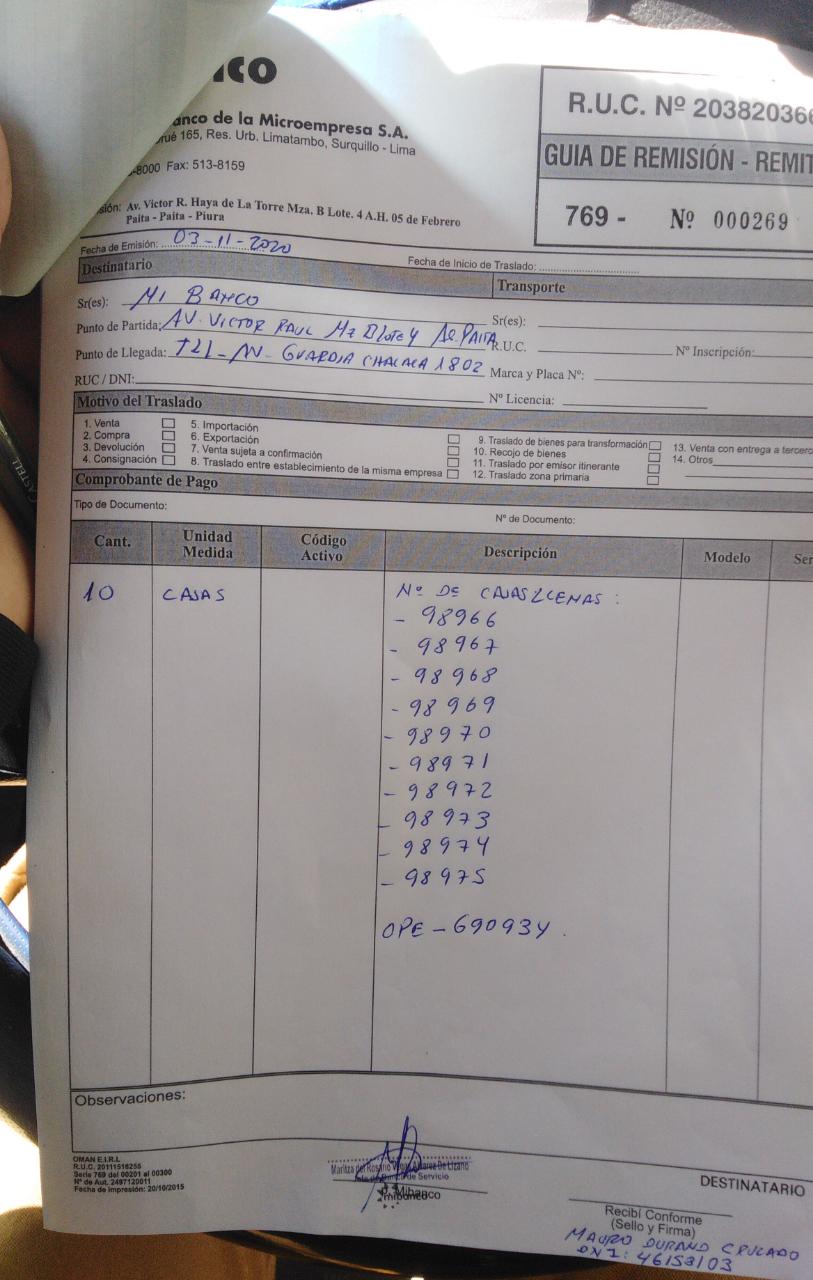 ico
anco de la Microempresa S.A.
rué 165, Res. Urb. Limatambo, Surquillo - Lima
-8000 Fax: 513-8159
sión: Av. Victor R. Haya de La Torre Mza. B Lote. 4 A.H. 05 de Febrero
Paita - Paita - Piura
R.U.C. Nº 20382036
GUIA DE REMISIÓN - REMIT
769 - Nº 000269
Fecha de Emisión: 03-11-2020
Fecha de Inicio de Traslado:
Destinatario
Transporte
Sr(es): MI BANCO
Sr(es):
Punto de Partida: AV. VICTOR RAUL Mz B Lote 4 PAITA
R.U.C. Nº Inscripción:
Punto de Llegada: TLI - AV. GUARDIA CHALACA 1802
Marca y Placa Nº:
RUC / DNI:
Nº Licencia:
Motivo del Traslado
1. Venta
2. Compra
3. Devolución
4. Consignación
5. Importación
6. Exportación
7. Venta sujeta a confirmación
8. Traslado entre establecimiento de la misma empresa
9. Traslado de bienes para transformación
10. Recojo de bienes
11. Traslado por emisor itinerante
12. Traslado zona primaria
13. Venta con entrega a tercero
14. Otros
Comprobante de Pago
Tipo de Documento:
Nº de Documento:
Cant. Unidad Medida Código Activo Descripción Modelo Ser
10 CAJAS Nº DE CAJAS LLENAS :
- 98966
- 98967
- 98968
- 98969
- 98970
- 98971
- 98972
- 98973
- 98974
- 98975
OPE - 690934.
Observaciones:
OMAN E.I.R.L
R.U.C. 20111516256
Serie 769 del 00201 al 00300
Nº de Aut. 2497120011
Fecha de Impresión: 20/10/2015
Maritza del Rosario Alvarez De Lizano
de Servicio
Mibanco
DESTINATARIO
Recibí Conforme
(Sello y Firma)
MAURO DURAND CRUZADO
DNI: 46153103